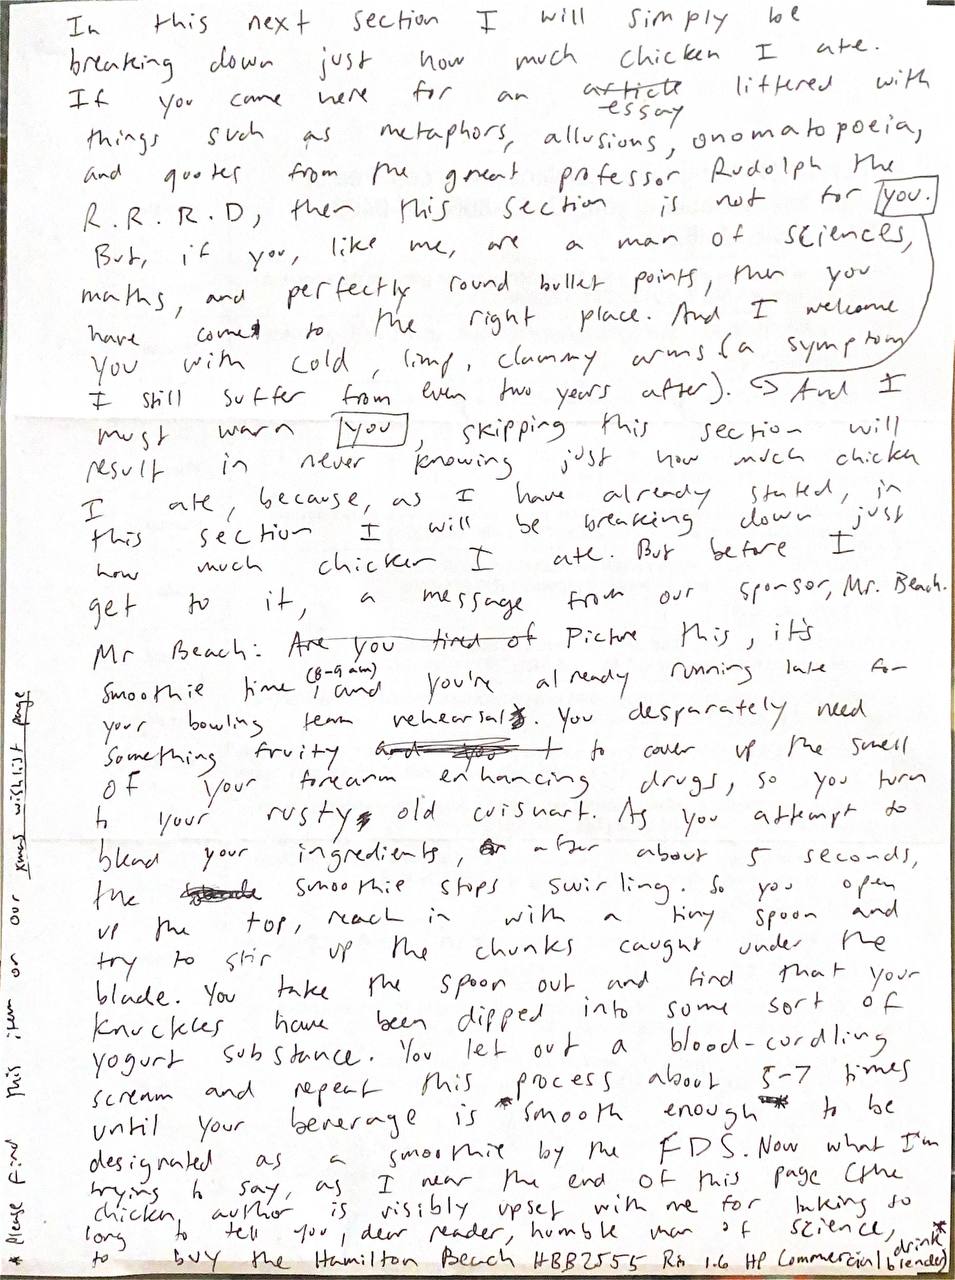 In this next section I will simply be
breaking down just how much chicken I ate.
If you came here for an article essay littered with
things such as metaphors, allusions, onomatopoeia,
and quotes from the great professor Rudolph the
R.R.R.D, then this section is not for you.
But, if you, like me, are a man of sciences,
maths, and perfectly round bullet points, then you
have come to the right place. And I welcome
you with cold, limp, clammy arms (a symptom
I still suffer from even two years after). And I
must warn you, skipping this section will
result in never knowing just how much chicken
I ate, because, as I have already stated, in
this section I will be breaking down just
how much chicken I ate. But before I
get to it, a message from our sponsor, Mr. Beach.
Mr Beach: Are you tired of Picture this, it's
smoothie time (8-9 am), and you're already running late for
your bowling team rehearsal. You desparately need
something fruity and you to cover up the smell
of your forearm enhancing drugs, so you turn
to your rusty old cuisnart. As you attempt to
blend your ingredients, after about 5 seconds,
the smoothie stops swirling. So you open
up the top, reach in with a tiny spoon and
try to stir up the chunks caught under the
blade. You take the spoon out and find that your
knuckles have been dipped into some sort of
yogurt substance. You let out a blood-curdling
scream and repeat this process about 5-7 times
until your beverage is "smooth enough" to be
designated as a smoothie by the FDS. Now what I'm
trying to say, as I near the end of this page (the
chicken author is visibly upset with me for taking so
long to tell you, dear reader, humble man of science,
to buy the Hamilton Beach HBB255S Rio 1.6 HP Commercial drink* blender)
* Please find this item on our xmas wishlist page